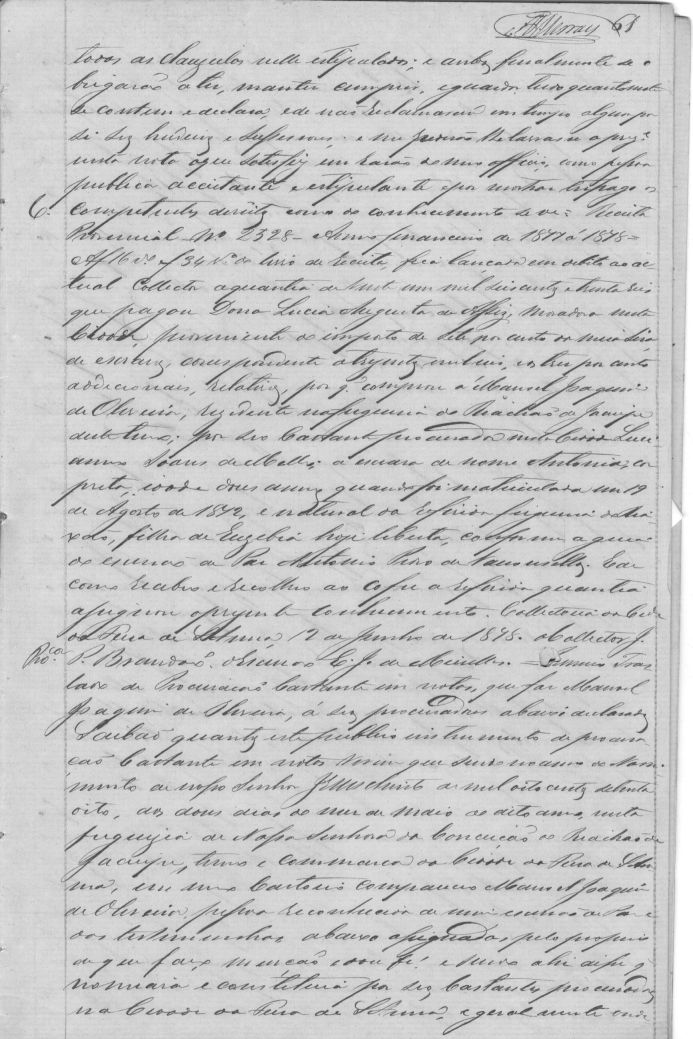 61
todas as clausulas nelle estipuladas; e ambos finalmente se o
brigarão a ter, manter cumprir, e guardar tudo quanto neste
se contem e declara, e de não reclamarem em tempo algum por
si seos herdeiros e sucessores; e me pedirão lhe lavrasse a prez.e
nesta nota o que satisfiz em razão de meu officio, como pessoa
publica acceitante e estipulante e por mostrar ter pago os
C.
competentes direitos como do conhecimento se ve = Receita
Provincial Nº 2328 - Anno financeiro de 1877 á 1878 =
Af 16 vº e f 34 vº do livro de Receita, fica lançada em debito ao ac
tual Collector a quantia de
que pagou Dona Lucia Augusta de Assis, moradora nesta
Cidade, proveniente do imposto de sete por cento da meia Siza
de escravos, correspondente a trezentos mil reis, e tres por cento
addicionaes, relativos, por q. comprou a Manoel Joaquim
de Oliveira, rezidente na freguezia do Riachão de Jacuipe
deste termo; por seo bastante procurador nesta Cidade Luci
anno Soares de Mello; a escrava de nome Antonia, cor
preta, idade dous annos quando foi matriculada em 19
de Agosto de 1872, e natural da referida freguezia do Ria
xão, filha de Euzebia hoje liberta, conforme a guia
do escrivão de Paz Antonio Pedro de Vasconcellos. E de
como recebeo e recolheo ao cofre a referida quantia
assignou o prezente conhecimento. Collectoria da Cida
da Feira de Santanna, 12 de Junho de 1878. O Collector J.
Pro.ca
P. Brandão. O Escrivão E. J. de Meirelles. = Primeiro Tras
lado de Procuração bastante em notas, que faz Manoel
Joaquim de Oliveira, á seos procuradores abaixo declarados
Saibão quantos este publico instrumento de procura
ção bastante em notas virem que sendo no anno do Nasci
mento de nosso Senhor Jesus Christo de mil oito centos setenta
oito, aos dous dias do mez de maio do dito anno, nesta
freguezia de Nossa Senhora da Conceição do Riachão de
Jacuipe, termo e commarca da Cidade da Feira de Santan
na, em meu Cartorio compareceo Manoel Joaquim
de Oliveira, pessoa reconhecida de mim escrivão de Paz e
das testimunhas abaixo assignadas, pelo proprio
de que faço menção e dou fé; e sendo ahi disse q.
nomeiava e constituia por seos bastantes procuradores
na Cidade da Feira de Santanna, e geral mente onde